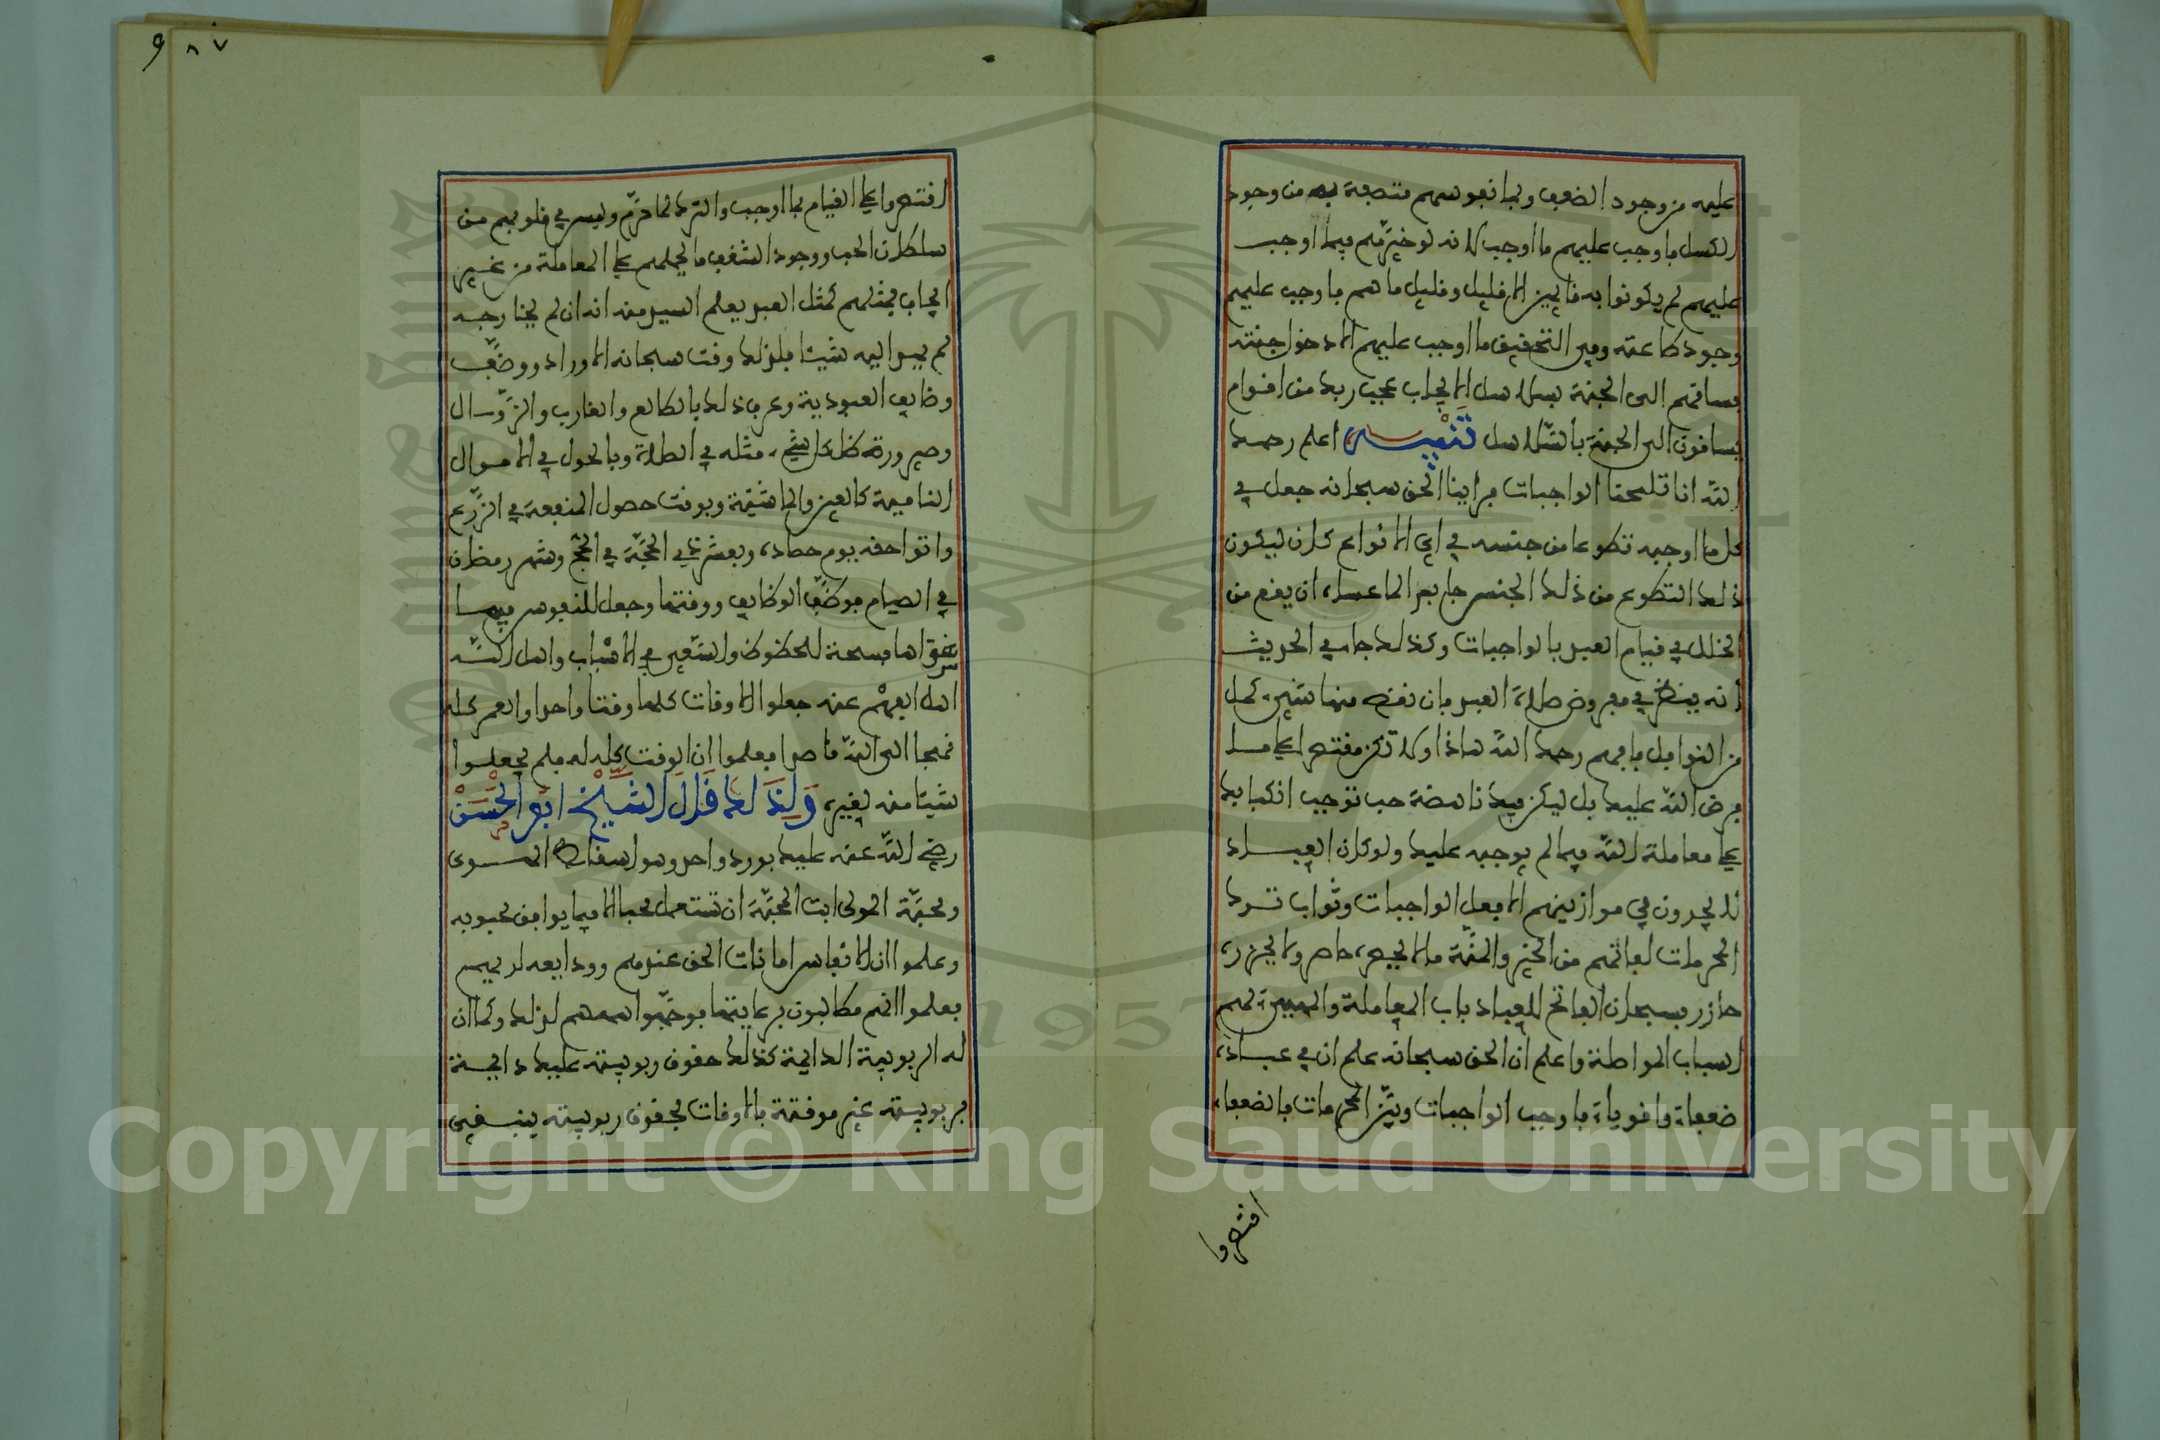 عليه من وجود الضعف وبما نفوسهم متصفة به من وجود
الكسل فاوجب عليهم ما اوجب لانه لو خيرهم فيما اوجب
عليهم لم يكونوا به قائمين الا قليل وقليل ما هم فاوجب عليهم
وجود طاعته وفي التحقيق ما اوجب عليهم الا دخول جنته
فساقهم الى الجنة بسلاسل الايجاب عجب ربك من اقوام
يساقون الى الجنة بالسلاسل تنبيه اعلم رحمك
الله انا تلمحنا الواجبات فراينا الحق سبحانه جعل في
كل ما اوجبه تطوعا من جنسه في اي الانواع كان ليكون
ذلك التطوع من ذلك الجنس جابرا لما عساه ان يقع من
الخلل في قيام العبد بالواجبات وكذلك جا في الحديث
انه ينظر في مفروض صلاة العبد فان نقص منها شيء كمل
من النوافل فافهم رحمك الله هاذا ولا تكن مقتصرا على ما
فرض الله عليك بل ليكن فيك ناهضة حب توجب انكبابك
على معاملة الله فيما لم يوجبه عليك ولو كان العباد
لا يجدون في موازينهم الا فعل الواجبات وثواب ترك
المحرمات لفاتهم من الخير والمنة ما لا يحصره حاصر ولا يحزره
حازر فسبحان الفاتح للعباد باب المعاملة والمهيئ لهم
اسباب المواصلة واعلم ان الحق سبحانه علم ان في عباده
ضعفاء واقوياء فاوجب الواجبات وبين المحرمات فالضعفاء
اقتصروا
٩٨٧
اقتصروا على القيام بما اوجب والترك لما حرم وليس في قلوبهم من
سلطان الحب ووجود الشغف ما يحملهم على المعاملة من غير
ايجاب فمثلهم كمثل العبد يعلم السيد منه انه ان لم يخارجه
لم يهد اليه شيئا فلذلك وقت سبحانه الاوراد ووظف
وظايف العبودية وعرف ذلك بالطالع والغارب والزوال
وصيرورة ظل كل شيء مثله في الصلاة وبالحول في الاموال
النامية كالعين والماشية وبوقت حصول المنفعة في الزرع
واتوا حقه يوم حصاده وبعشر ذي الحجة في الحج وشهر رمضان
في الصيام فوظف الوظايف ووقتها وجعل للنفوس فيما
سواها فسحة للحظوظ والسعي في الاسباب واهل الله
اهل الفهم عنه جعلوا الاوقات كلها وقتا واحدا والعمر كله
نهجا الى الله قاصدا فعلموا ان الوقت كله له فلم يجعلوا
شيئا منه لغيره ولذلك قال الشيخ ابو الحسن
رضي الله عنه عليك بورد واحد وهو اسقاط الهوى
ومحبة المولى ابت المحبة ان تستعمل محبا الا فيما يوافق محبوبه
وعلموا ان الانفاس امانات الحق عندهم وودايعه لديهم
فعلموا انهم مطالبون برعايتها فوجهوا هممهم لذلك وكما ان
له الربوبية الدايمة كذلك حقوق ربوبيته عليك دايمة
فربوبيته غير موقتة بالاوقات لحقوق ربوبيته ينبغي
Copyright © King Saud University